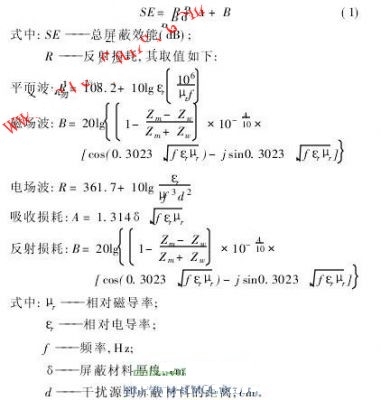 SE= R + A + B (1)
式中: SE ——总屏蔽效能(dB);
R ——反射损耗,其取值如下:
平面波: R = 108.2+ 10lg{10⁶ εr / μr f}
磁场波: B= 20lg{[1- (Zm- Zw)/(Zm+ Zw)] ×10^(-A/10) ×
[cos(0.3023 √fεrμr)- jsin0.3023 √fεrμr]}
电场波: R= 361.7+ 10lg εr/μf³d²
吸收损耗: A= 1.314δ √fεrμr
反射损耗: B= 20lg{[1- (Zm- Zw)/(Zm+ Zw)] ×10^(-A/10) ×
[cos(0.3023 √fεrμr)- jsin0.3023 √fεrμr]}
式中: μr ——相对磁导率;
εr ——相对电导率;
f ——频率,Hz;
δ——屏蔽材料厚度,
d ——干扰源到屏蔽材料的距离,